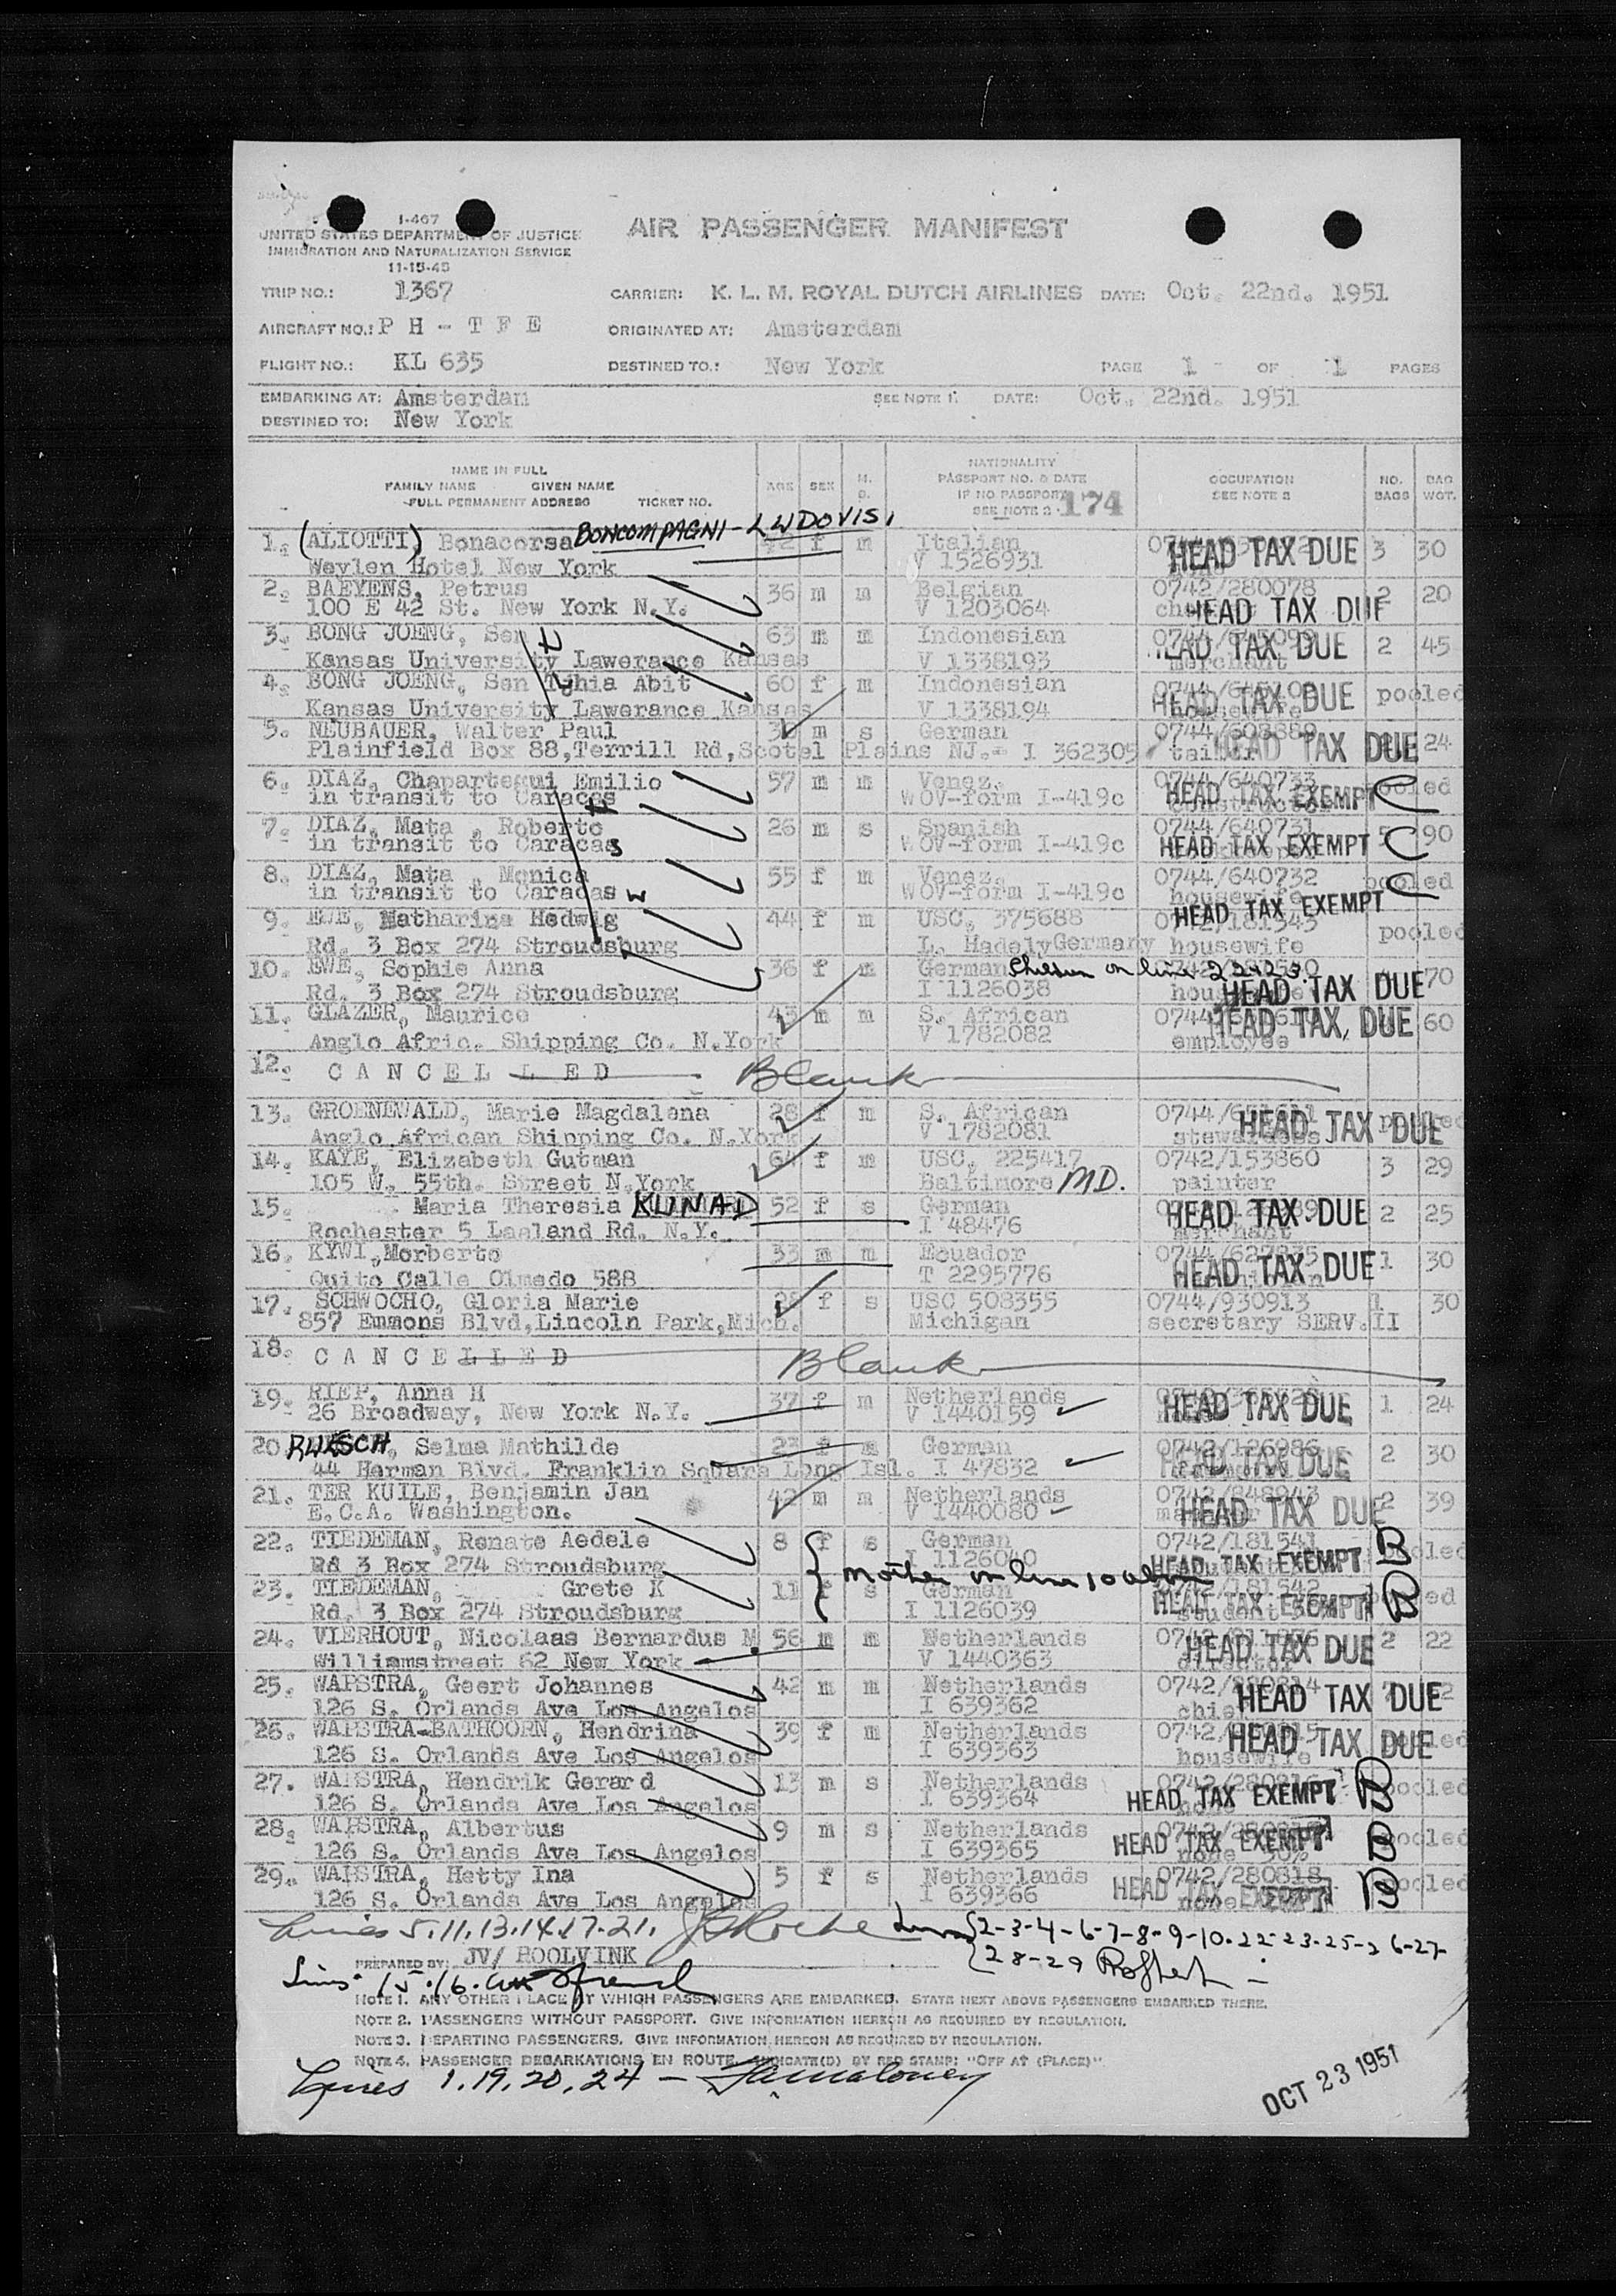 I-467
UNITED STATES DEPARTMENT OF JUSTICE
IMMIGRATION AND NATURALIZATION SERVICE
11-15-45
AIR PASSENGER MANIFEST
TRIP NO.: 1367 CARRIER: K. L. M. ROYAL DUTCH AIRLINES DATE: Oct. 22nd. 1951
AIRCRAFT NO.: P H - T F E ORIGINATED AT: Amsterdam
FLIGHT NO.: KL 635 DESTINED TO.: New York PAGE 1 OF 1 PAGES
EMBARKING AT: Amsterdam SEE NOTE 1. DATE: Oct. 22nd. 1951
DESTINED TO: New York
NAME IN FULL
FAMILY NAME GIVEN NAME
FULL PERMANENT ADDRESS TICKET NO.
AGE SEX M. S.
NATIONALITY
PASSPORT NO. & DATE
IF NO PASSPORT
SEE NOTE 2 174
OCCUPATION
SEE NOTE 2
NO. BAGS
BAG WGT.
1. (ALIOTTI) Bonacorsa BONCOMPAGNI-LUDOVISI f m Italian HEAD TAX DUE 3 30
Weylen Hotel New York V 1526931
2. BAEYENS, Petrus 36 m m Belgian 0742/280078 2 20
100 E 42 St. New York N.Y. V 1203064 HEAD TAX DUE
3. BONG JOENG, Sen 63 m m Indonesian HEAD TAX DUE 2 45
Kansas University Lawerance Kansas V 1338193 merchant
4. BONG JOENG, Sen Tjhia Abit 60 f m Indonesian HEAD TAX DUE pooled
Kansas University Lawerance Kansas V 1338194
5. NEUBAUER, Walter Paul m s German 0744/608889 24
Plainfield Box 88,Terrill Rd,Scotel Plains NJ.- I 362305 HEAD TAX DUE
6. DIAZ, Chapartegui Emilio 57 m m Venez. 0744/640733 pooled
in transit to Caracas WOV-form I-419c HEAD TAX EXEMPT C
7. DIAZ, Mata , Roberto 26 m s Spanish 0744/640731 5 90
in transit to Caracas WOV-form I-419c HEAD TAX EXEMPT C
8. DIAZ, Mata , Monica 55 f m Venez. 0744/640732 pooled
in transit to Caracas WOV-form I-419c housewife C
HEAD TAX EXEMPT
9. EWE, Katharina Hedwig 44 f m USC, 375688 0742/181543 pooled
Rd. 3 Box 274 Stroudsburg L. Hadely Germany housewife
10. EWE, Sophie Anna 36 f m German Children on line 22+23 70
Rd. 3 Box 274 Stroudsburg I 1126038 HEAD TAX DUE
11. GLAZER, Maurice 43 m m S. African HEAD TAX DUE 60
Anglo Afric. Shipping Co. N.York V 1782082 employee
12. C A N C E L L E D Blank
13. GROENEWALD, Marie Magdalena 28 f m S. African HEAD TAX DUE
Anglo African Shipping Co. N.York V 1782081 stewardess
14. KAYE, Elizabeth Gutman 64 f m USC, 225417 0742/153860 3 29
105 W. 55th. Street N.York Baltimore MD. painter
15. Maria Theresia KUNAD 52 f s German HEAD TAX DUE 2 25
Rochester 5 Laeland Rd. N.Y. I 48476 merchant
16. KYWI,Norberto 33 m m Ecuador HEAD TAX DUE 1 30
Quito Calle Olmedo 588 T 2295776
17. SCHWOCHO, Gloria Marie 28 f s USC 508355 0744/930913 1 30
857 Emmons Blvd,Lincoln Park,Mich. Michigan secretary SERV.II
18. C A N C E L L E D Blank
19. RIEP, Anna H 37 f m Netherlands HEAD TAX DUE 1 24
26 Broadway, New York N.Y. V 1440159
20. RUKSCH, Selma Mathilde 23 f m German 0742/126986 2 30
44 Herman Blvd. Franklin Square Long Isl. I 47832 HEAD TAX DUE
21. TER KUILE, Benjamin Jan 42 m m Netherlands 0742/848943 2 39
E.C.A. Washington. V 1440080 HEAD TAX DUE
22. TIEDEMAN, Renate Aedele 8 f s German 0742/181541 B pooled
Rd 3 Box 274 Stroudsburg I 1126040 HEAD TAX EXEMPT
mother on line 10 above
23. TIEDEMAN, Grete K 11 f s German 0742/181542 B pooled
Rd. 3 Box 274 Stroudsburg I 1126039 HEAD TAX EXEMPT
24. VIERHOUT, Nicolaas Bernardus M. 56 m m Netherlands HEAD TAX DUE 2 22
Williamstreet 62 New York V 1440363
25. WAPSTRA, Geert Johannes 42 m m Netherlands HEAD TAX DUE
126 S. Orlands Ave Los Angelos I 639362
26. WAPSTRA-BATHOORN, Hendrina 39 f m Netherlands HEAD TAX DUE
126 S. Orlands Ave Los Angelos I 639363 housewife
27. WAPSTRA, Hendrik Gerard 13 m s Netherlands 0742/280816 B pooled
126 S. Orlands Ave Los Angelos I 639364 HEAD TAX EXEMPT
28. WAPSTRA, Albertus 9 m s Netherlands HEAD TAX EXEMPT B pooled
126 S. Orlands Ave Los Angelos I 639365 none
29. WAPSTRA, Hetty Ina 5 f s Netherlands 0742/280818 B pooled
126 S. Orlands Ave Los Angelos I 639366 HEAD TAX EXEMPT none
Lines 5.11.13.14.17.21. Lines 2-3-4-6-7-8-9-10-22-23-25-26-27-
28-29
PREPARED BY: JV/ ROOLVINK
Lines 15.16.
NOTE 1. ANY OTHER PLACE AT WHICH PASSENGERS ARE EMBARKED. STATE NEXT ABOVE PASSENGERS EMBARKED THERE.
NOTE 2. PASSENGERS WITHOUT PASSPORT. GIVE INFORMATION HEREON AS REQUIRED BY REGULATION.
NOTE 3. DEPARTING PASSENGERS. GIVE INFORMATION HEREON AS REQUIRED BY REGULATION.
NOTE 4. PASSENGER DEBARKATIONS EN ROUTE. INDICATE(D) BY RED STAMP: "OFF AT (PLACE)".
Lines 1.19.20.24 - Maloney
OCT 23 1951